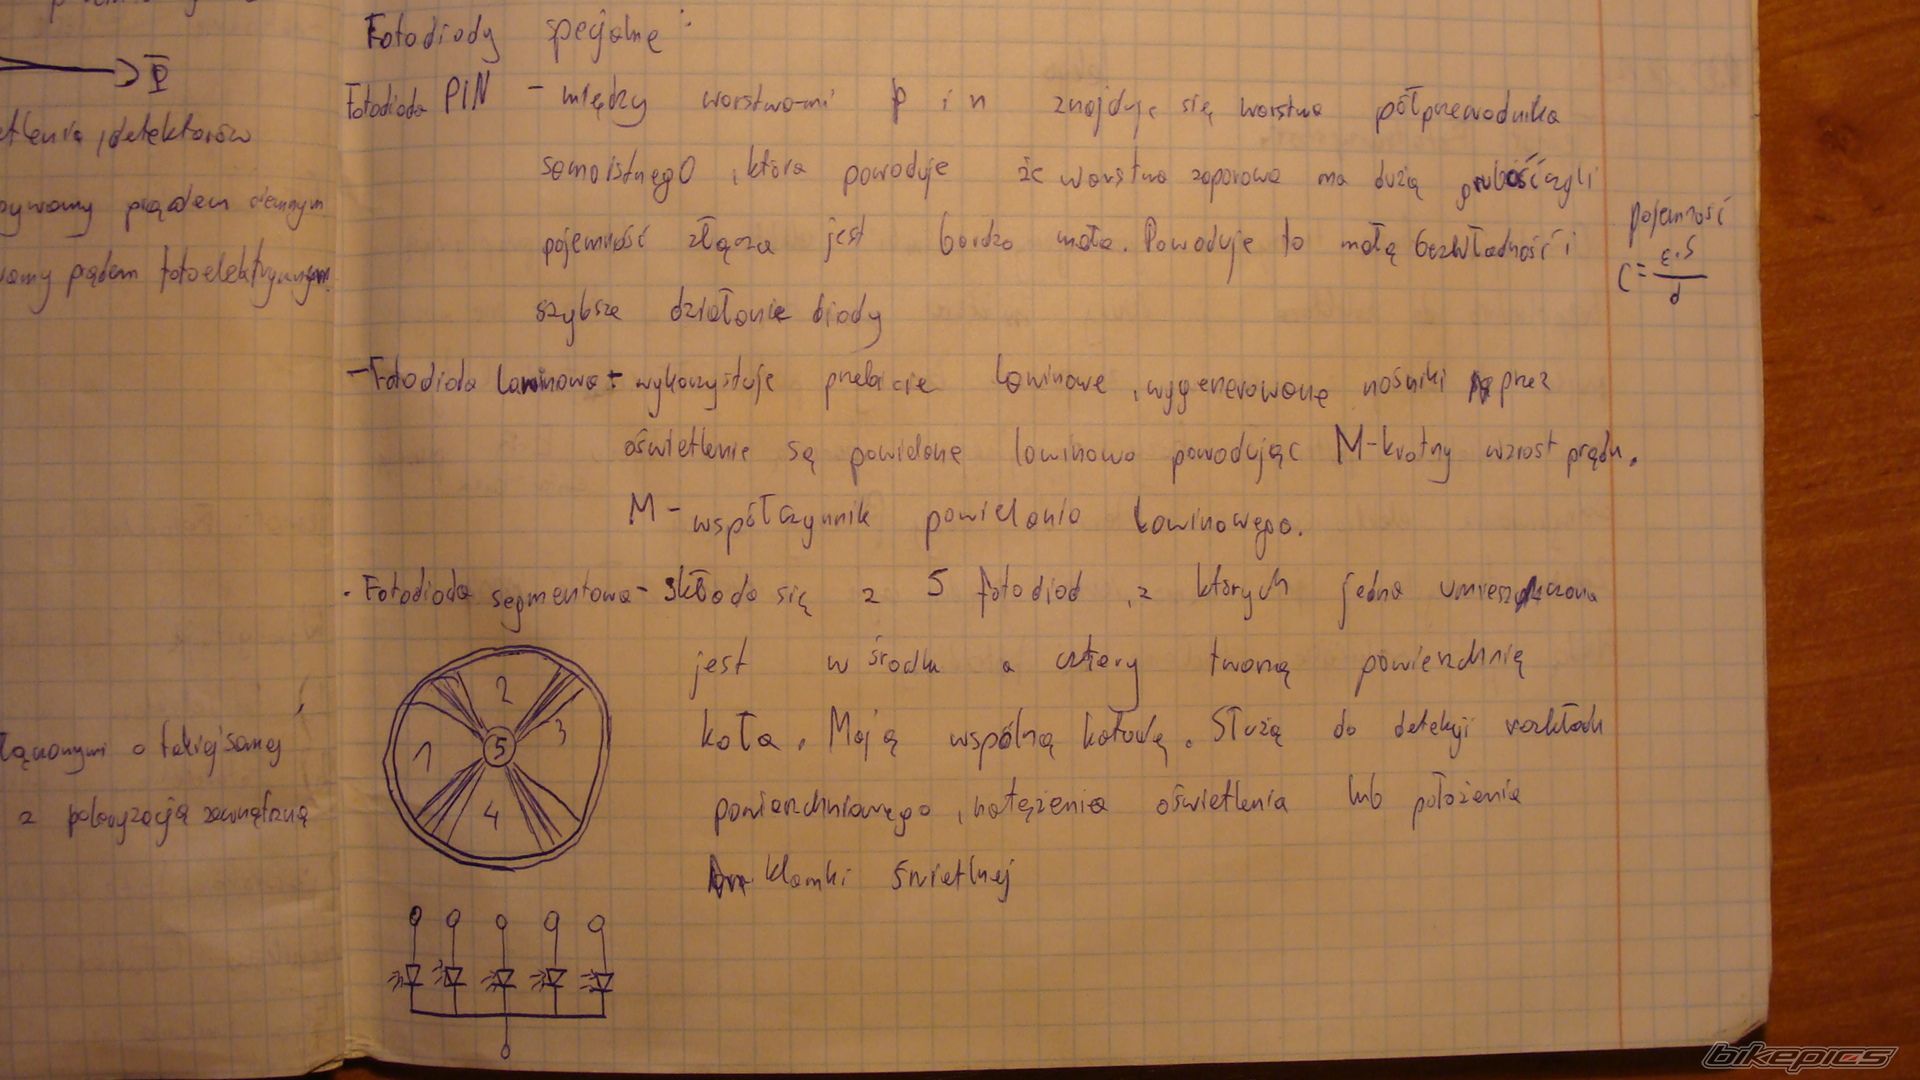 I
etlenia, detektorów
zywamy prądem ciemnym
wamy prądem fotoelektrycznym
łączonymi o takiej samej
z polaryzacją zewnętrzną
Fotodiody specjalne:
Fotodioda PIN - między warstwami p i n znajduje się warstwa półprzewodnika
samoistnego, która powoduje że warstwa zaporowa ma dużą grubość czyli
pojemność złącza jest bardzo mała. Powoduje to małą bezwładność i
szybsze działanie diody
pojemność
C = ε·S
d
- Fotodioda lawinowa - wykorzystuje przebicie lawinowe, wygenerowane nośniki przez
oświetlenie są powielone lawinowo powodując M-krotny wzrost prądu.
M - współczynnik powielania lawinowego.
· Fotodioda segmentowa - składa się z 5 fotodiod, z których jedna umieszczona
jest w środku a cztery tworzą powierzchnię
koła. Mają wspólną katodę. Służą do detekcji rozkładu
powierzchniowego, natężenia oświetlenia lub położenia
klamki świetlnej
2
3
5
1
4
bikepics